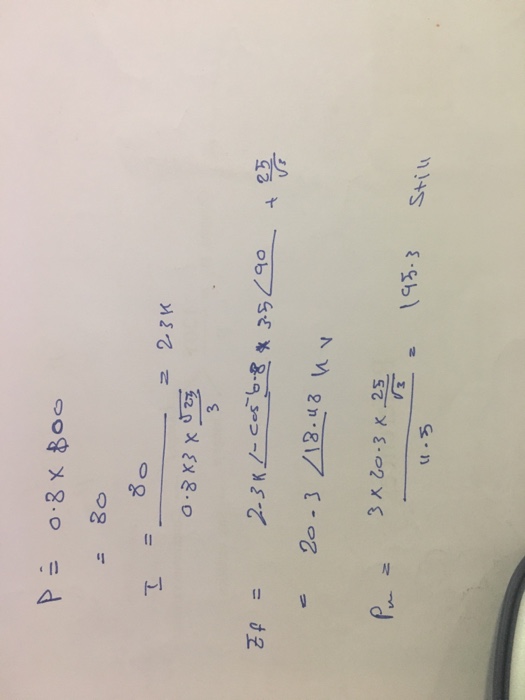 P = 0.8 x 800
= 80
I = 80 / 0.8 x 3 x √25/3 = 23K
Ef = 2.3K ∠-cos⁻¹0.8 * 3.5 ∠90 + 25/√3
= 20.3 ∠18.43 KV
Pm = 3 x 20.3 x 25/√3 / 4.5 = 195.3 Still